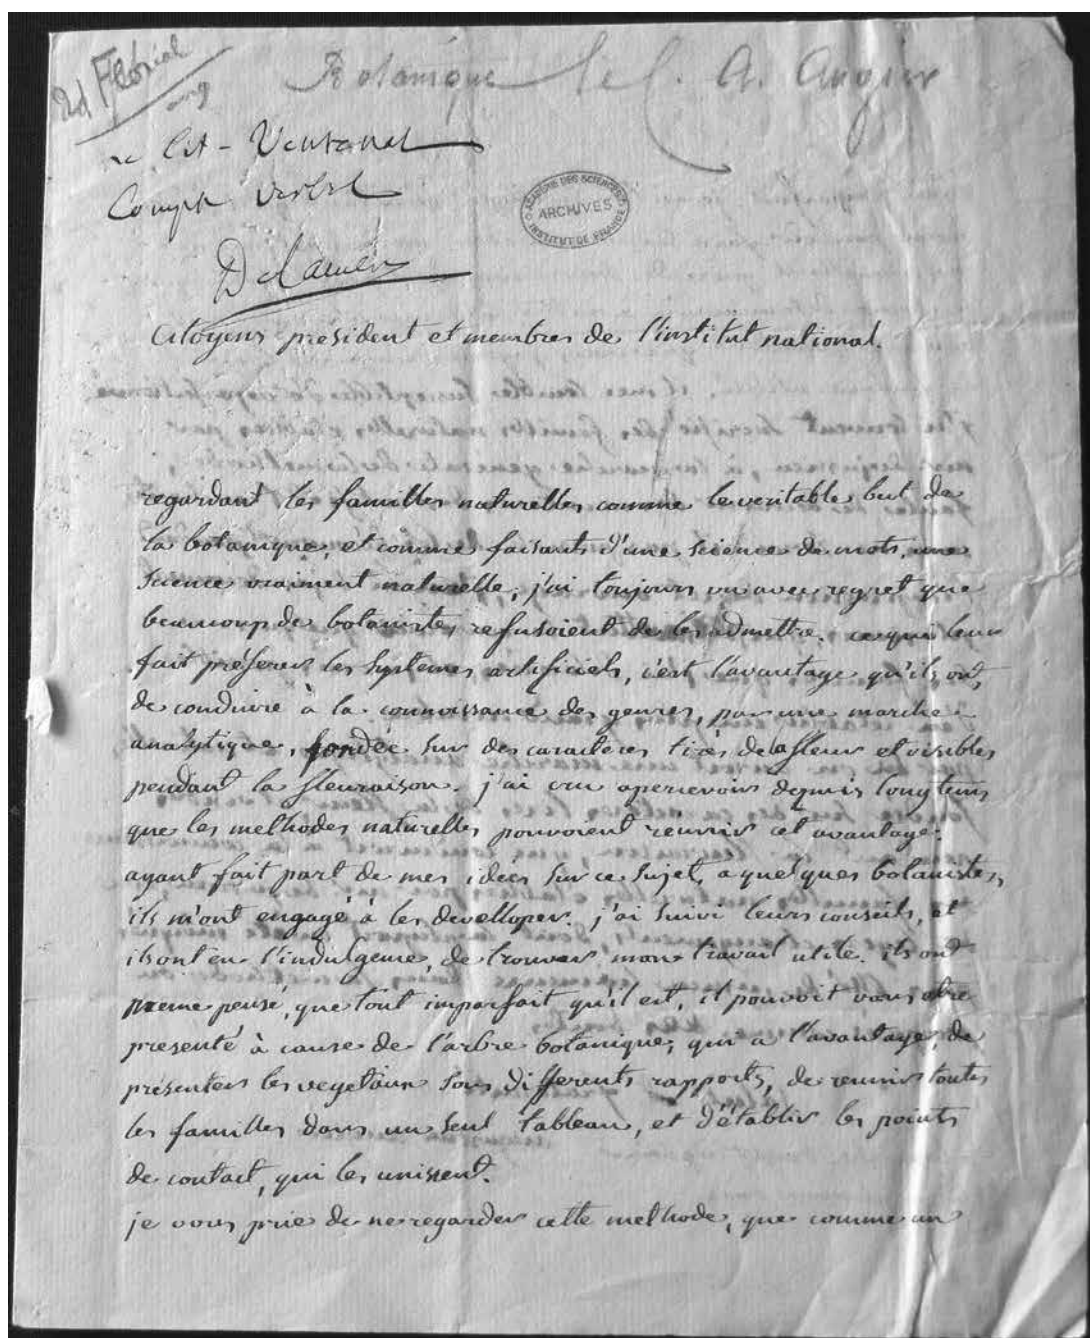 2d Floréal
an 9
Botanique le C. A. Augier
le Cit - Ventenat
Compte verbal
Delambre
ACADÉMIE DES SCIENCES
ARCHIVES
INSTITUT DE FRANCE
Citoyens président et membres de l'institut national.
regardant les familles naturelles comme le veritable but de
la botanique, et comme faisants d'une science de mots, une
science vraiment naturelle, j'ai toujours vu avec regret que
beaucoup de botanistes refusoient de les admettre. ce qui leur
fait préferer les systemes artificiels, c'est l'avantage qu'ils ont,
de conduire à la connoissance des genres, par une marche
analytique, fondée sur des caracteres tirés de la fleur et visibles
pendant la fleuraison. j'ai cru apercevoir depuis longtems
que les methodes naturelles pouvoient reunir cet avantage.
ayant fait part de mes idées sur ce sujet, a quelques botanistes,
ils m'ont engagé à les developer. j'ai suivi leurs conseils, et
ils ont eu l'indulgence, de trouver mon travail utile. ils ont
meme pensé, que tout imparfait qu'il est, il pouvoit vous etre
presenté à cause de l'arbre botanique, qui a l'avantage, de
presenter les vegetaux sous differents rapports, de reunir toutes
les familles dans un seul tableau, et d'établir les points
de contact, qui les unissent.
je vous prie de ne regarder cette methode, que comme un